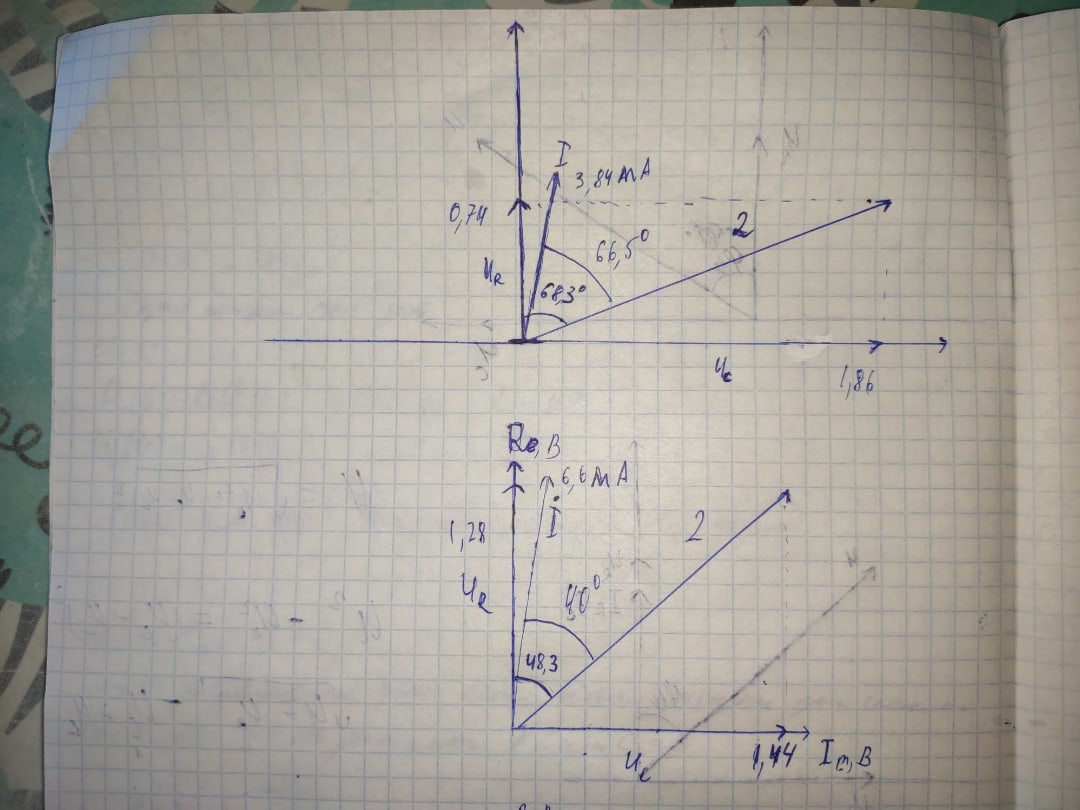 I
3,84 mA
0,74
2
66,5°
U_R
68,3°
U_c
1,86
Re, B
6,6 mA
İ
1,28
2
U_R
40°
48,3
U_c
1,44
Im, B